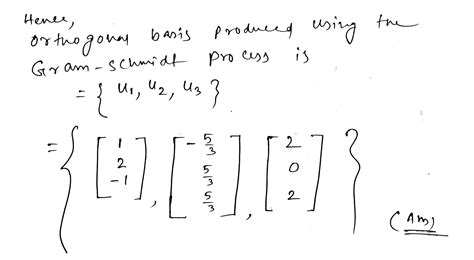 Hence,
orthogonal basis produced using the
Gram-Schmidt process is
= { u₁, u₂, u₃ }
= { [1 2 -1], [-5/3 5/3 5/3], [2 0 2] }
(Ans)